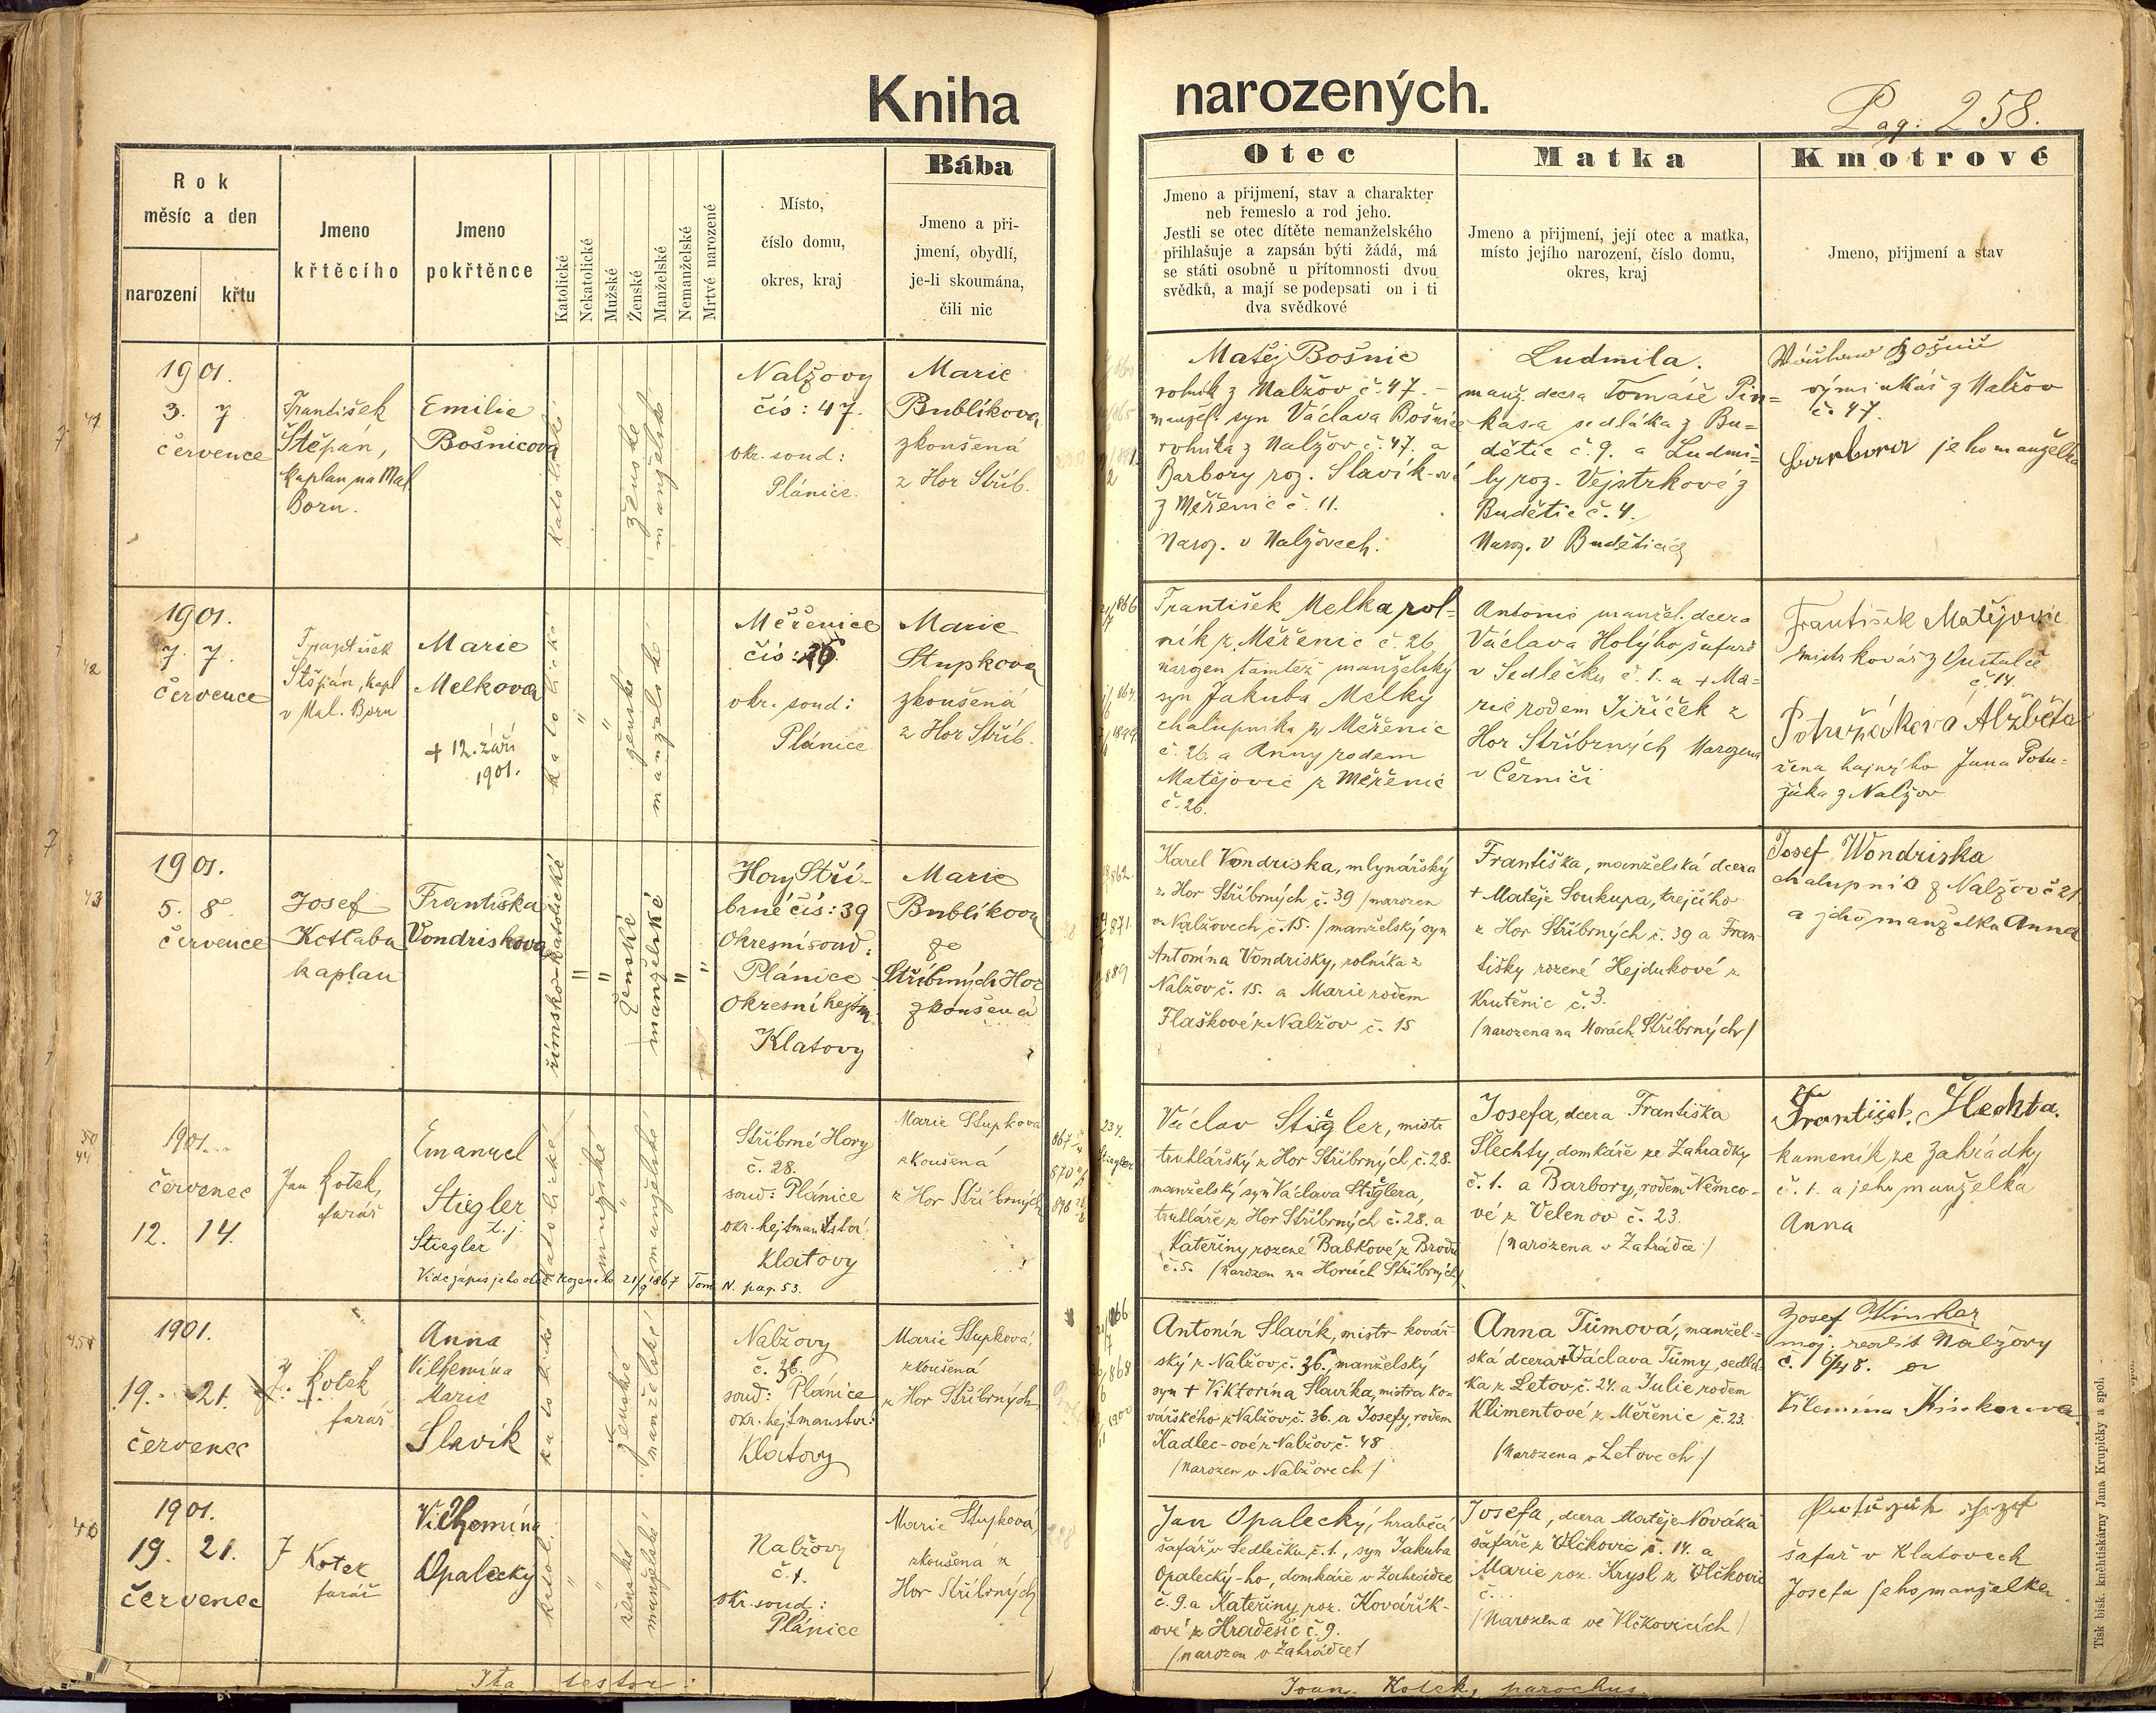 Kniha narozených.
Pag: 258.
Rok
měsíc a den
narození
křtu
Jmeno
křtěcího
Jmeno
pokřtěnce
Katolické
Nekatolické
Mužské
Ženské
Manželské
Nemanželské
Mrtvé narozené
Místo,
číslo domu,
okres, kraj
Bába
Jmeno a při-
jmení, obydlí,
je-li skoumána,
čili nic
Otec
Jmeno a přijmení, stav a charakter
neb řemeslo a rod jeho.
Jestli se otec dítěte nemanželského
přihlašuje a zapsán býti žádá, má
se státi osobně u přítomnosti dvou
svědků, a mají se podepsati on i ti
dva svědkové
Matka
Jmeno a přijmení, její otec a matka,
místo jejího narození, číslo domu,
okres, kraj
Kmotrové
Jmeno, přijmení a stav
1901.
3. 7
července
František
Štěpán,
kaplan na Mal
Boru.
Emilie
Bošnicova
katolické
ženské
manželské
Nalžovy
čís: 47.
okr. soud:
Plánice.
Marie
Bublíkova
zkoušená
z Hor Stříb.
Matěj Bošnic
rolník z Nalžov č. 47. –
manžel. syn Václava Bošnice
rolníka z Nalžov č. 47. a
Barbory roz. Slavík-ové
z Měřenic č. 11.
Naroz. v Nalžovech.
Ludmila.
manž. dcera Tomáše Pin=
kasa sedláka z Bu=
dětic č. 9. a Ludmi=
ly roz. Vejstrkové z
Budětic č. 4.
Naroz. v Buděticích
Bošnic
výminkář z Nalžov
č. 47.
Barbora jeho manželka
1901.
7. 7.
července
František
Štěpán, kapl
v Mal. Boru
Marie
Melkova
+ 12. září
1901.
katolické
ženské
manželské
Měřenice
čís: 26.
okr. soud:
Plánice
Marie
Stupkova
zkoušená
z Hor Stříb.
František Melka rol-
ník z Měřenic č. 26
narozen tamtéž manželský
syn Jakuba Melky
chalupníka z Měřenic
č. 26. a Anny rodem
Matějovic z Měřenic
č. 26.
Antonie manžel. dcera
Václava Holýho šafáře
v Sedlečku č. 1. a + Ma-
rie rodem Jiříček z
Hor Stříbrných Narozena
v Černíči
František Matějovic
mistr kovář z
č. 14.
Potužáková Alžběta
žena hajného Jana Potu-
žáka z Nalžov
43
1901.
5. 8.
července
Josef
Kotlaba
kaplan
Františka
Vondriskova
římsko-katolické
ženské
manželské
Hory Stří-
brné čís: 39
Okresní soud:
Plánice
Okresní hejtm.
Klatovy
Marie
Bublíkova
ze
Stříbrných Hor
zkoušená
Karel Vondriska, mlynářský
z Hor Stříbrných č. 39 /narozen
v Nalžovech č. 15./ manželský syn
Antonína Vondrisky, rolníka z
Nalžov č. 15. a Marie rodem
Flaškové z Nalžov č. 15
Františka, manželská dcera
+ Matěje Soukupa, krejčího
z Hor Stříbrných č. 39 a Fran-
tišky rozené Hejdukové z
Krutěnic č. 3.
/narozena na Horách Stříbrných/
Josef Wondriska
chalupník z Nalžov č 21
a jeho manželka Anna
44
1901.
červenec
12. 14.
Jan Kotek,
farář
Emanuel
Stiegler
t. j.
Stiegler
katolické
mužské
manželské
Vide zápis jeho otce rozeného 21/9 1867 Tom. N. pag. 53.
Stříbrné Hory
č. 28.
soud: Plánice
okr. hejtmanství:
Klatovy
Marie Stupkova
zkoušená
z Hor Stříbrných
Václav Stiegler, mistr
truhlářský z Hor Stříbrných, č. 28.
manželský syn Václava Stieglera,
truhláře z Hor Stříbrných č. 28. a
Kateřiny rozené Babkové z Brodu
č. 5. /narozen na Horách Stříbrných/
Josefa, dcera Františka
Šlechty, domkáře ze Zahrádky
č. 1. a Barbory, rodem Němco-
vé z Velenov č. 23.
/narozena v Zahrádce/
František Šlechta.
kameník ze Zahrádky
č. 1. a jeho manželka
Anna
1901.
19. 21.
červenec
J. Kotek
farář
Anna
Vilhemína
Marie
Slavík
katolické
ženské
manželské
Nalžovy
č. 36.
soud: Plánice
okr. hejtmanství:
Klatovy
Marie Stupková,
zkoušená
z Hor Stříbrných
Antonín Slavík, mistr kovář-
ský z Nalžov, č. 36., manželský
syn + Viktorína Slavíka, mistra ko-
vářského z Nalžov, č. 36. a Josefy, rodem
Kadlec-ové z Nalžov č. 48
/narozen v Nalžovech/
Anna Tůmová, manžel-
ská dcera + Václava Tůmy, sedlá-
ka z Letov, č. 24. a Julie rodem
Klimentové z Měřenic č. 23
/narozena v Letovech/
Josef
maj. realit Nalžovy
č. 6/48. a
1901.
19. 21.
červenec
J Kotek
farář
Vilhemína
Opalecký
katol.
ženské
manželské
Nalžovy
č. 1.
okr. soud:
Plánice
Marie Stupková,
zkoušená z
Hor Stříbrných
Jan Opalecký, hraběcí
šafář v Sedlečku, č. 1., syn Jakuba
Opalecký-ho, domkáře v Zahrádce
č. 9. a Kateřiny roz. Kovářík-
ové z Hradešic č. 9.
/narozen v Zahrádce/
Josefa, dcera Matěje Nováka
šafáře z Vlčkovic č. 14. a
Marie roz. Krysl z Vlčkovic
č. ...
/Narozena ve Vlčkovicích/
šafář v Klatovech
Josefa jeho manželka
Ita testor:
Joan. Kotek, parochus.
Tisk bisk. knihtiskárny Jana Krupičky a spol.